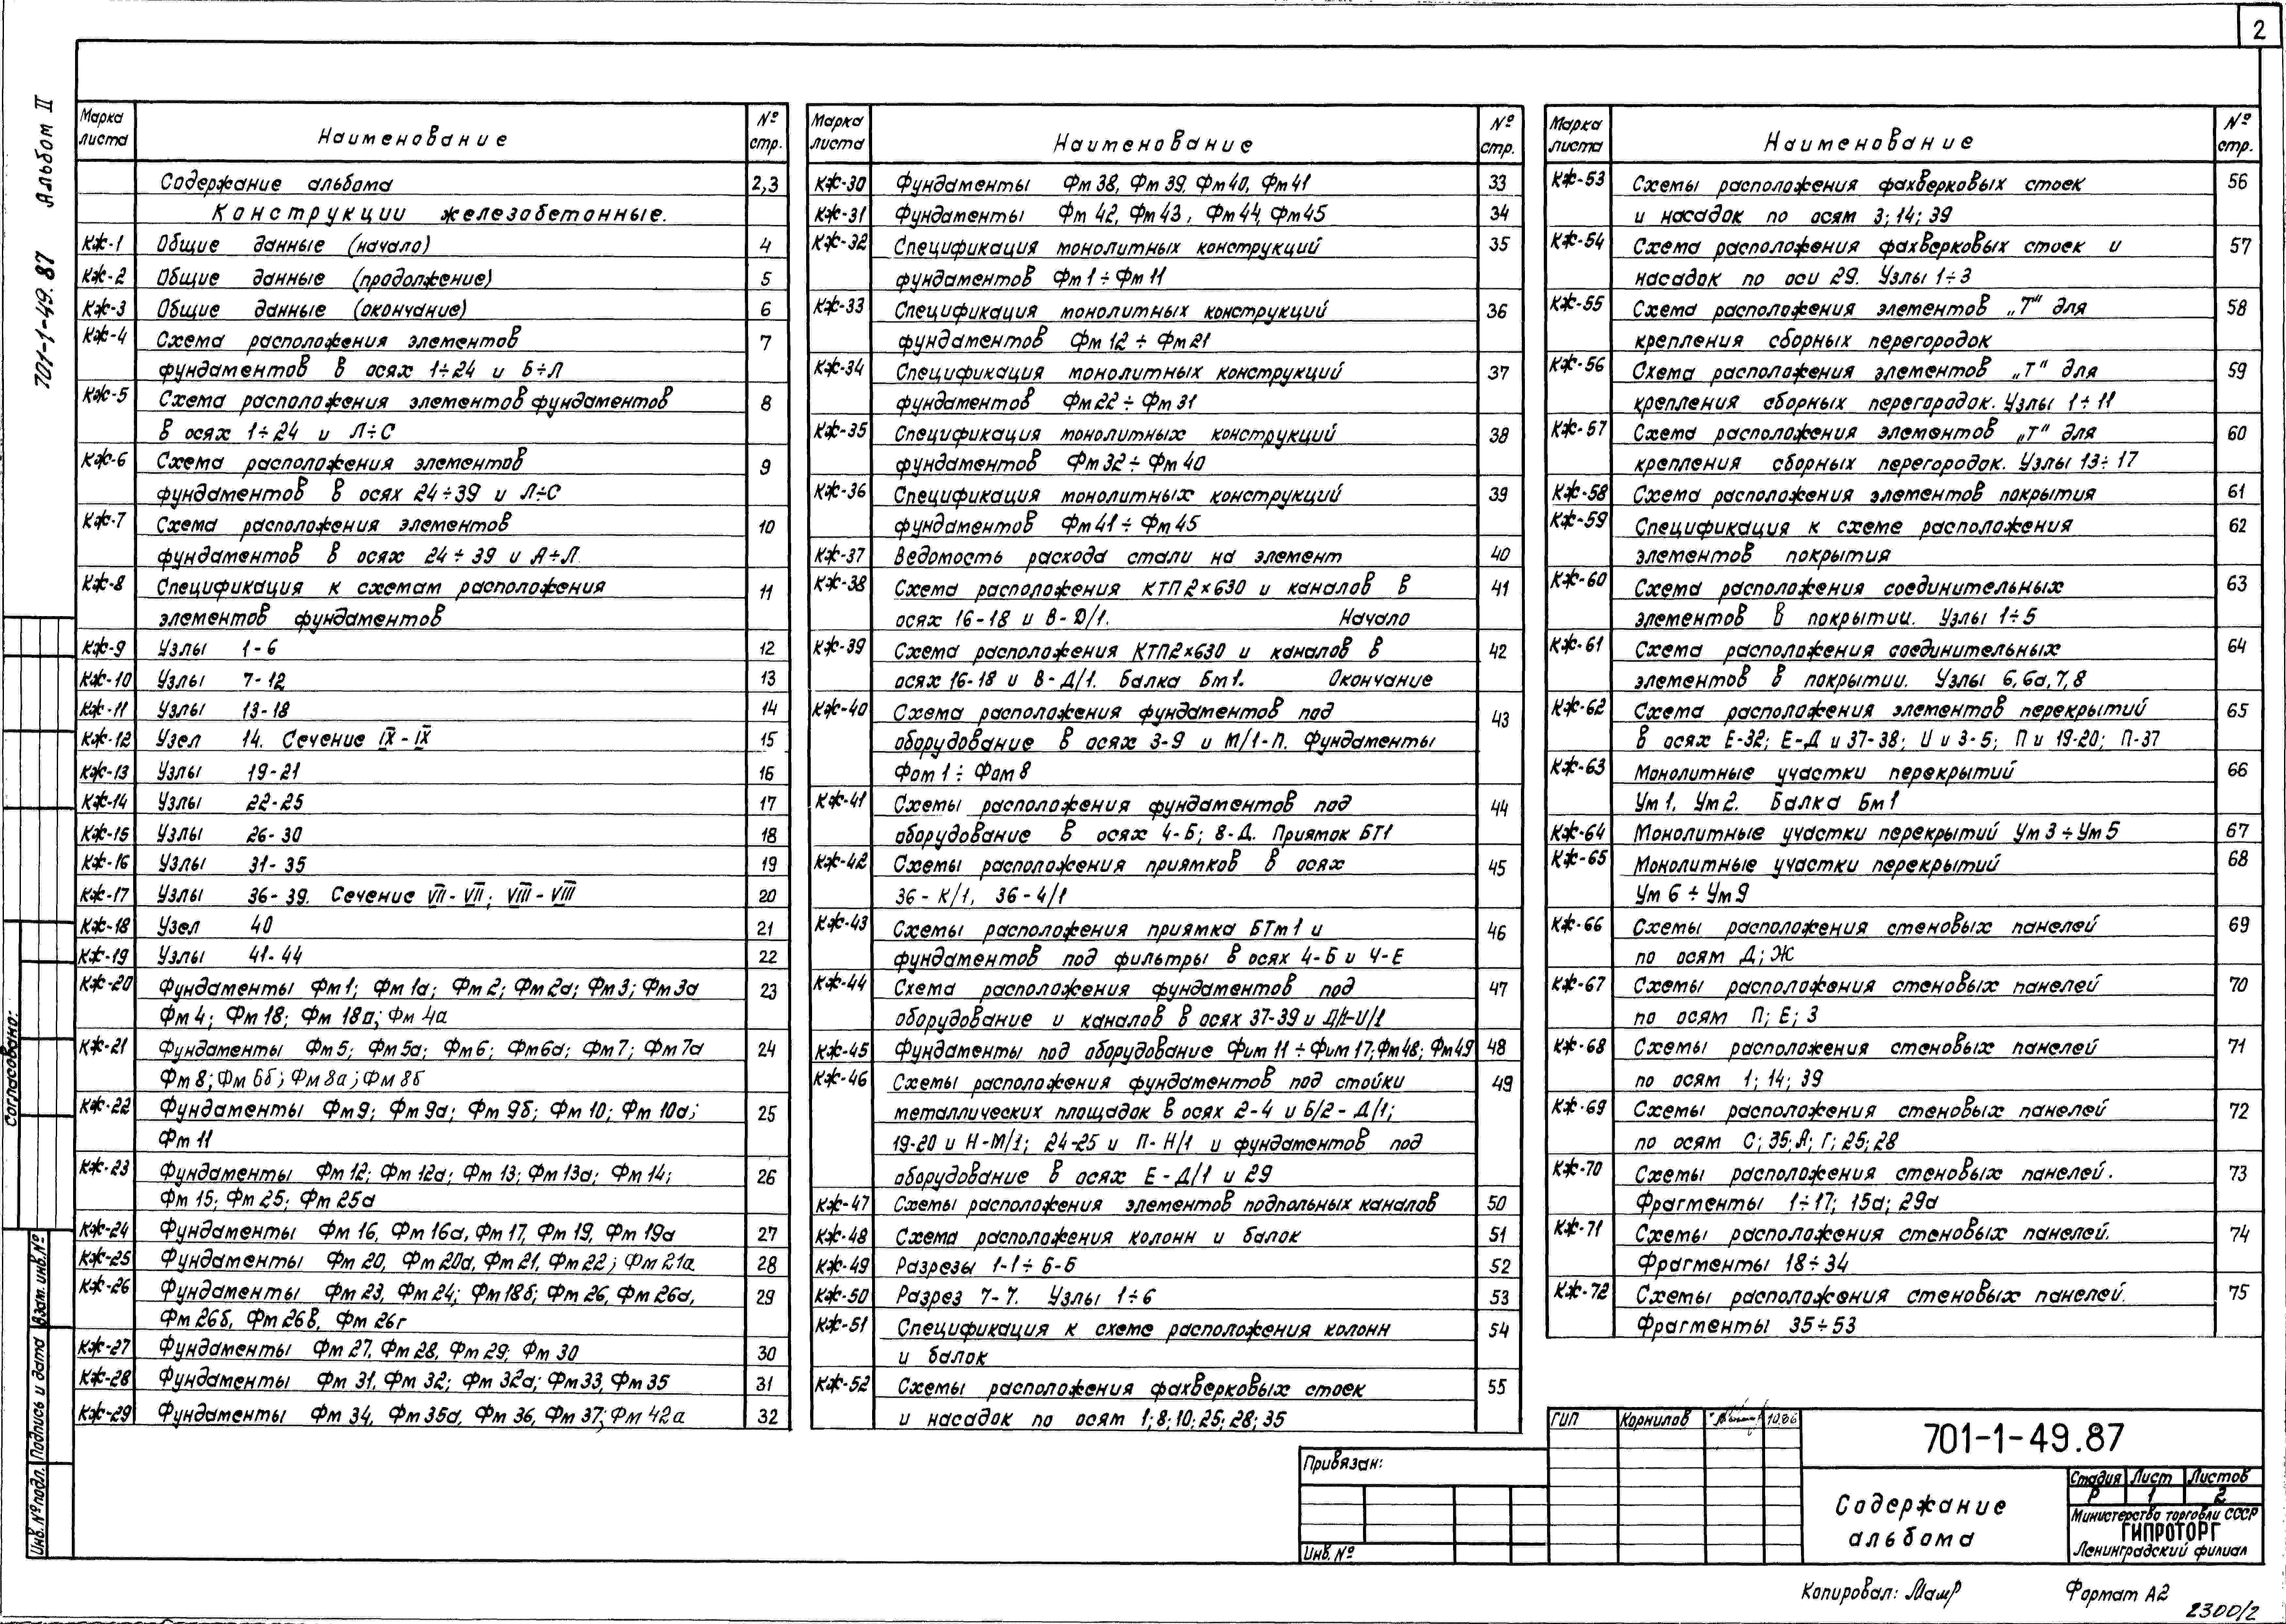 2
701-1-49.87 Альбом II
Марка листа Наименование № стр.
Содержание альбома 2,3
Конструкции железобетонные.
КЖ-1 Общие данные (начало) 4
КЖ-2 Общие данные (продолжение) 5
КЖ-3 Общие данные (окончание) 6
КЖ-4 Схема расположения элементов 7
фундаментов в осях 1÷24 и Б÷Л
КЖ-5 Схема расположения элементов фундаментов 8
в осях 1÷24 и Л÷С
КЖ-6 Схема расположения элементов 9
фундаментов в осях 24÷39 и Л÷С
КЖ-7 Схема расположения элементов 10
фундаментов в осях 24÷39 и А÷Л
КЖ-8 Спецификация к схемам расположения 11
элементов фундаментов
КЖ-9 Узлы 1-6 12
КЖ-10 Узлы 7-12 13
КЖ-11 Узлы 13-18 14
КЖ-12 Узел 14. Сечение IX-IX 15
КЖ-13 Узлы 19-21 16
КЖ-14 Узлы 22-25 17
КЖ-15 Узлы 26-30 18
КЖ-16 Узлы 31-35 19
КЖ-17 Узлы 36-39. Сечение VII-VII; VIII-VIII 20
КЖ-18 Узел 40 21
КЖ-19 Узлы 41-44 22
КЖ-20 Фундаменты Фм1; Фм1а; Фм2; Фм2а; Фм3; Фм3а 23
Фм4; Фм18; Фм18а; Фм4а
КЖ-21 Фундаменты Фм5; Фм5а; Фм6; Фм6а; Фм7; Фм7а 24
Фм8; Фм6б; Фм8а; Фм8б
КЖ-22 Фундаменты Фм9; Фм9а; Фм9б; Фм10; Фм10а; 25
Фм11
КЖ-23 Фундаменты Фм12; Фм12а; Фм13; Фм13а; Фм14; 26
Фм15; Фм25; Фм25а
КЖ-24 Фундаменты Фм16, Фм16а, Фм17, Фм19, Фм19а 27
КЖ-25 Фундаменты Фм20, Фм20а, Фм21, Фм22; Фм21а 28
КЖ-26 Фундаменты Фм23, Фм24; Фм18б; Фм26, Фм26а, 29
Фм26б, Фм26в, Фм26г
КЖ-27 Фундаменты Фм27, Фм28, Фм29; Фм30 30
КЖ-28 Фундаменты Фм31, Фм32; Фм32а; Фм33, Фм35 31
КЖ-29 Фундаменты Фм34, Фм35а, Фм36, Фм37; Фм42а 32
Марка листа Наименование № стр.
КЖ-30 Фундаменты Фм38, Фм39, Фм40, Фм41 33
КЖ-31 Фундаменты Фм42, Фм43, Фм44, Фм45 34
КЖ-32 Спецификация монолитных конструкций 35
фундаментов Фм1÷Фм11
КЖ-33 Спецификация монолитных конструкций 36
фундаментов Фм12÷Фм21
КЖ-34 Спецификация монолитных конструкций 37
фундаментов Фм22÷Фм31
КЖ-35 Спецификация монолитных конструкций 38
фундаментов Фм32÷Фм40
КЖ-36 Спецификация монолитных конструкций 39
фундаментов Фм41÷Фм45
КЖ-37 Ведомость расхода стали на элемент 40
КЖ-38 Схема расположения КТП2×630 и каналов в 41
осях 16-18 и В-Д/1. Начало
КЖ-39 Схема расположения КТП2×630 и каналов в 42
осях 16-18 и В-Д/1. Балка Бм1. Окончание
КЖ-40 Схема расположения фундаментов под 43
оборудование в осях 3-9 и М/1-П. Фундаменты
Фом1÷Фом8
КЖ-41 Схемы расположения фундаментов под 44
оборудование в осях 4-Б; 8-Д. Приямок БТ1
КЖ-42 Схемы расположения приямков в осях 45
36-К/1, 36-4/1
КЖ-43 Схемы расположения приямка БТм1 и 46
фундаментов под фильтры в осях 4-Б и 4-Е
КЖ-44 Схема расположения фундаментов под 47
оборудование и каналов в осях 37-39 и Д/1-И/1
КЖ-45 Фундаменты под оборудование Фим11÷Фим17; Фм48; Фм49 48
КЖ-46 Схемы расположения фундаментов под стойки 49
металлических площадок в осях 2-4 и Б/2-Д/1;
19-20 и Н-М/1; 24-25 и П-Н/1 и фундаментов под
оборудование в осях Е-Д/1 и 29
КЖ-47 Схемы расположения элементов подпольных каналов 50
КЖ-48 Схема расположения колонн и балок 51
КЖ-49 Разрезы 1-1÷6-6 52
КЖ-50 Разрез 7-7. Узлы 1÷6 53
КЖ-51 Спецификация к схеме расположения колонн 54
и балок
КЖ-52 Схемы расположения фахверковых стоек 55
и насадок по осям 1; 8; 10; 25; 28; 35
Марка листа Наименование № стр.
КЖ-53 Схемы расположения фахверковых стоек 56
и насадок по осям 3; 14; 39
КЖ-54 Схема расположения фахверковых стоек и 57
насадок по оси 29. Узлы 1÷3
КЖ-55 Схема расположения элементов „Т" для 58
крепления сборных перегородок
КЖ-56 Схема расположения элементов „Т" для 59
крепления сборных перегородок. Узлы 1÷11
КЖ-57 Схема расположения элементов „Т" для 60
крепления сборных перегородок. Узлы 13÷17
КЖ-58 Схема расположения элементов покрытия 61
КЖ-59 Спецификация к схеме расположения 62
элементов покрытия
КЖ-60 Схема расположения соединительных 63
элементов в покрытии. Узлы 1÷5
КЖ-61 Схема расположения соединительных 64
элементов в покрытии. Узлы 6, 6а, 7, 8
КЖ-62 Схема расположения элементов перекрытий 65
в осях Е-32; Е-Д и 37-38; И и 3-5; П и 19-20; П-37
КЖ-63 Монолитные участки перекрытий 66
Ум1, Ум2. Балка Бм1
КЖ-64 Монолитные участки перекрытий Ум3÷Ум5 67
КЖ-65 Монолитные участки перекрытий 68
Ум6÷Ум9
КЖ-66 Схемы расположения стеновых панелей 69
по осям Д; Ж
КЖ-67 Схемы расположения стеновых панелей 70
по осям П; Е; 3
КЖ-68 Схемы расположения стеновых панелей 71
по осям 1; 14; 39
КЖ-69 Схемы расположения стеновых панелей 72
по осям С; 35; А; Г; 25; 28
КЖ-70 Схемы расположения стеновых панелей. 73
Фрагменты 1÷17; 15а; 29а
КЖ-71 Схемы расположения стеновых панелей. 74
Фрагменты 18÷34
КЖ-72 Схемы расположения стеновых панелей. 75
Фрагменты 35÷53
Согласовано:
Взам. инв.№
Подпись и дата
Инв.№ подл.
Привязан:
Инв. №
ГИП Корнилов 10.86
701-1-49.87
Содержание
альбома
Стадия Лист Листов
Р 1 2
Министерство торговли СССР
ГИПРОТОРГ
Ленинградский филиал
Копировал:
Формат А2
2300/2